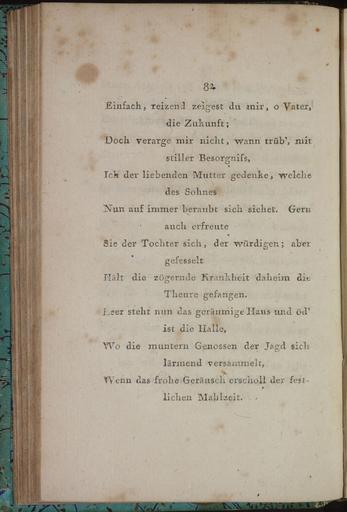 82
Einfach, reizend zeigest du mir, o Vater,
die Zukunft;
Doch verarge mir nicht, wann trüb', mit
stiller Besorgniſs,
Ich der liebenden Mutter gedenke, welche
des Sohnes
Nun auf immer beraubt sich siehet. Gern
auch erfreute
Sie der Tochter sich, der würdigen; aber
gefesselt
Hält die zögernde Krankheit daheim die
Theure gefangen.
Leer steht nun das geräumige Haus und öd'
ist die Halle,
Wo die muntern Genossen der Jagd sich
lärmend versammelt,
Wenn das frohe Geräusch erscholl der fest-
lichen Mahlzeit.